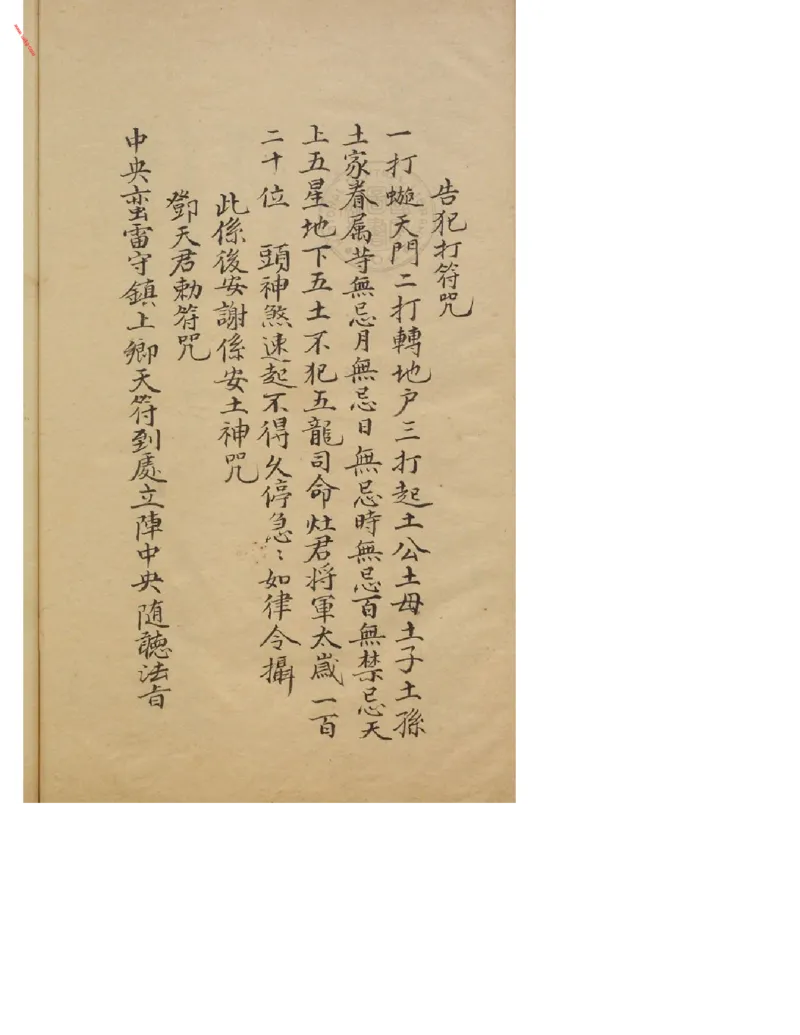 告犯打符咒
一打蜁天門二打轉地户三打起土公土母土子土孫
土家眷属䓁無忌月無忌日無忌時無忌百無禁忌天
上五星地下五土不犯五龍司命灶君将軍太歲一百
二十位 頭神煞速起不得久停急〻如律令攝
此係後安謝係安土神咒
鄧天君勅符咒
中央蛮雷守鎮上鄉天符到處立陣中央随聽法旨